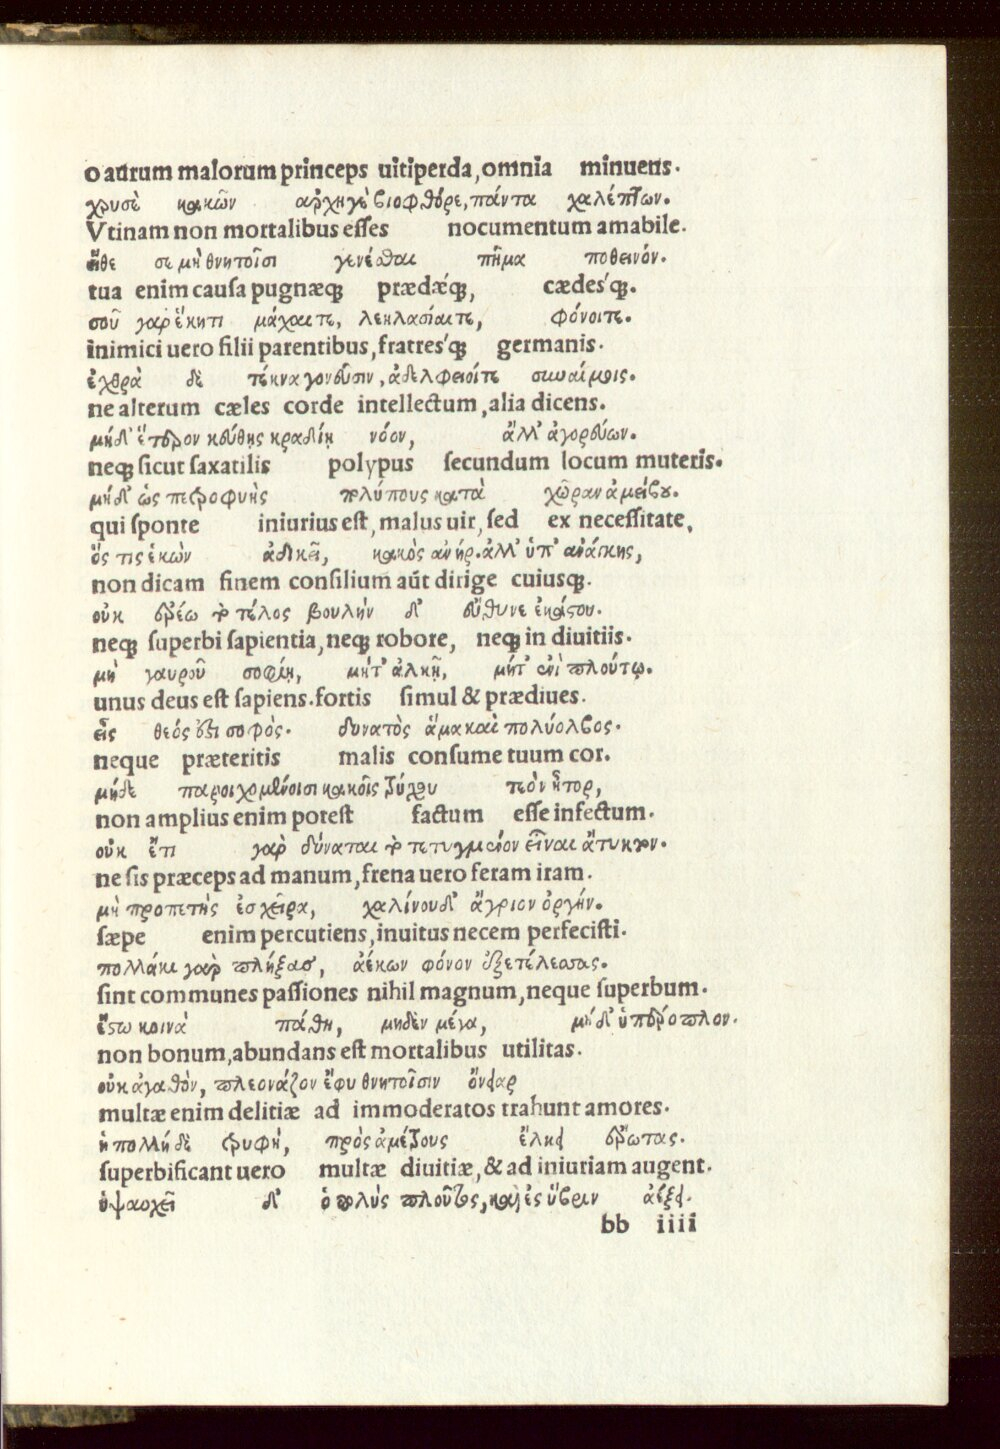 o aurum malorum princeps uitiperda, omnia minuens.
χρυσὲ κακῶν ἀρχηγὲ βιοφθόρε, πάντα χαλέπτων.
Vtinam non mortalibus esses nocumentum amabile.
εἴθε σε μὴ θνητοῖσι γενέσθαι πῆμα ποθεινόν.
tua enim causa pugnæqꝫ prædǽqꝫ, cædes'qꝫ.
σοῦ γὰρ ἕκητι μάχαιτε, λεηλασίαιτε, φόνοιτε.
inimici uero filii parentibus, fratres'qꝫ germanis.
ἐχθρὰ δὲ τέκνα γονεῦσιν, ἀδελφειοίτε συναίμοις.
ne alterum cæles corde intellectum, alia dicens.
μήδ' ἕτερον κεύθῃς κραδίῃ νόον, ἄλλ' ἀγορεύων.
neqꝫ sicut saxatilis polypus secundum locum muteris.
μήδ' ὡς πετροφυὴς πολύπους κατὰ χῶραν ἀμείβου.
qui sponte iniurius est, malus uir, sed ex necessitate,
ὅς τις ἑκὼν ἀδικεῖ, κακὸς ἀνήρ. ἀλλ' ὑπ' ἀνάγκης,
non dicam finem consilium aūt dirige cuiusqꝫ.
οὐκ ἐρέω τὸ τέλος βουλὴν δ' εὔθυνε ἑκάστου.
neqꝫ superbi sapientia, neqꝫ robore, neqꝫ in diuitiis.
μὴ γαυροῦ σοφίῃ, μήτ' ἀλκῇ, μήτ' ἐνὶ πλούτῳ.
unus deus est sapiens. fortis simul & prædiues.
εἷς θεός ἐστι σοφὸς. δυνατὸς ἅμα καὶ πολύολβος.
neque præteritis malis consume tuum cor.
μήδε παροιχομένοισι κακοῖς τρύχου τεὸν ἦτορ,
non amplius enim potest factum esse infectum.
οὐκ ἔτι γὰρ δύναται τὸ τετυγμένον εἶναι ἄτυκτον.
ne sis præceps ad manum, frena uero feram iram.
μὴ προπετὴς ἐς χεῖρα, χαλίνου δ' ἄγριον ὀργήν.
sæpe enim percutiens, inuitus necem perfecisti.
πολλάκι γὰρ πλήξας, ἀέκων φόνον ἐξετέλεσας.
sint communes passiones nihil magnum, neque superbum.
ἔστω κοινὰ πάθη, μηδὲν μέγα, μήδ' ὑπέροπλον.
non bonum, abundans est mortalibus utilitas.
οὐκ ἀγαθὸν, πλεονάζον ἔφυ θνητοῖσιν ὄνειαρ
multæ enim delitiæ ad immoderatos trahunt amores.
ἡ πολλὴ δὲ τρυφὴ, πρὸς ἀμέτρους ἕλκει ἔρωτας.
superbificant uero multæ diuitiæ, & ad iniuriam augent.
ὑψαυχεῖ δ' ὁ πολὺς πλοῦτος, καὶ ἐς ὕβριν ἀέξει.
bb iiii